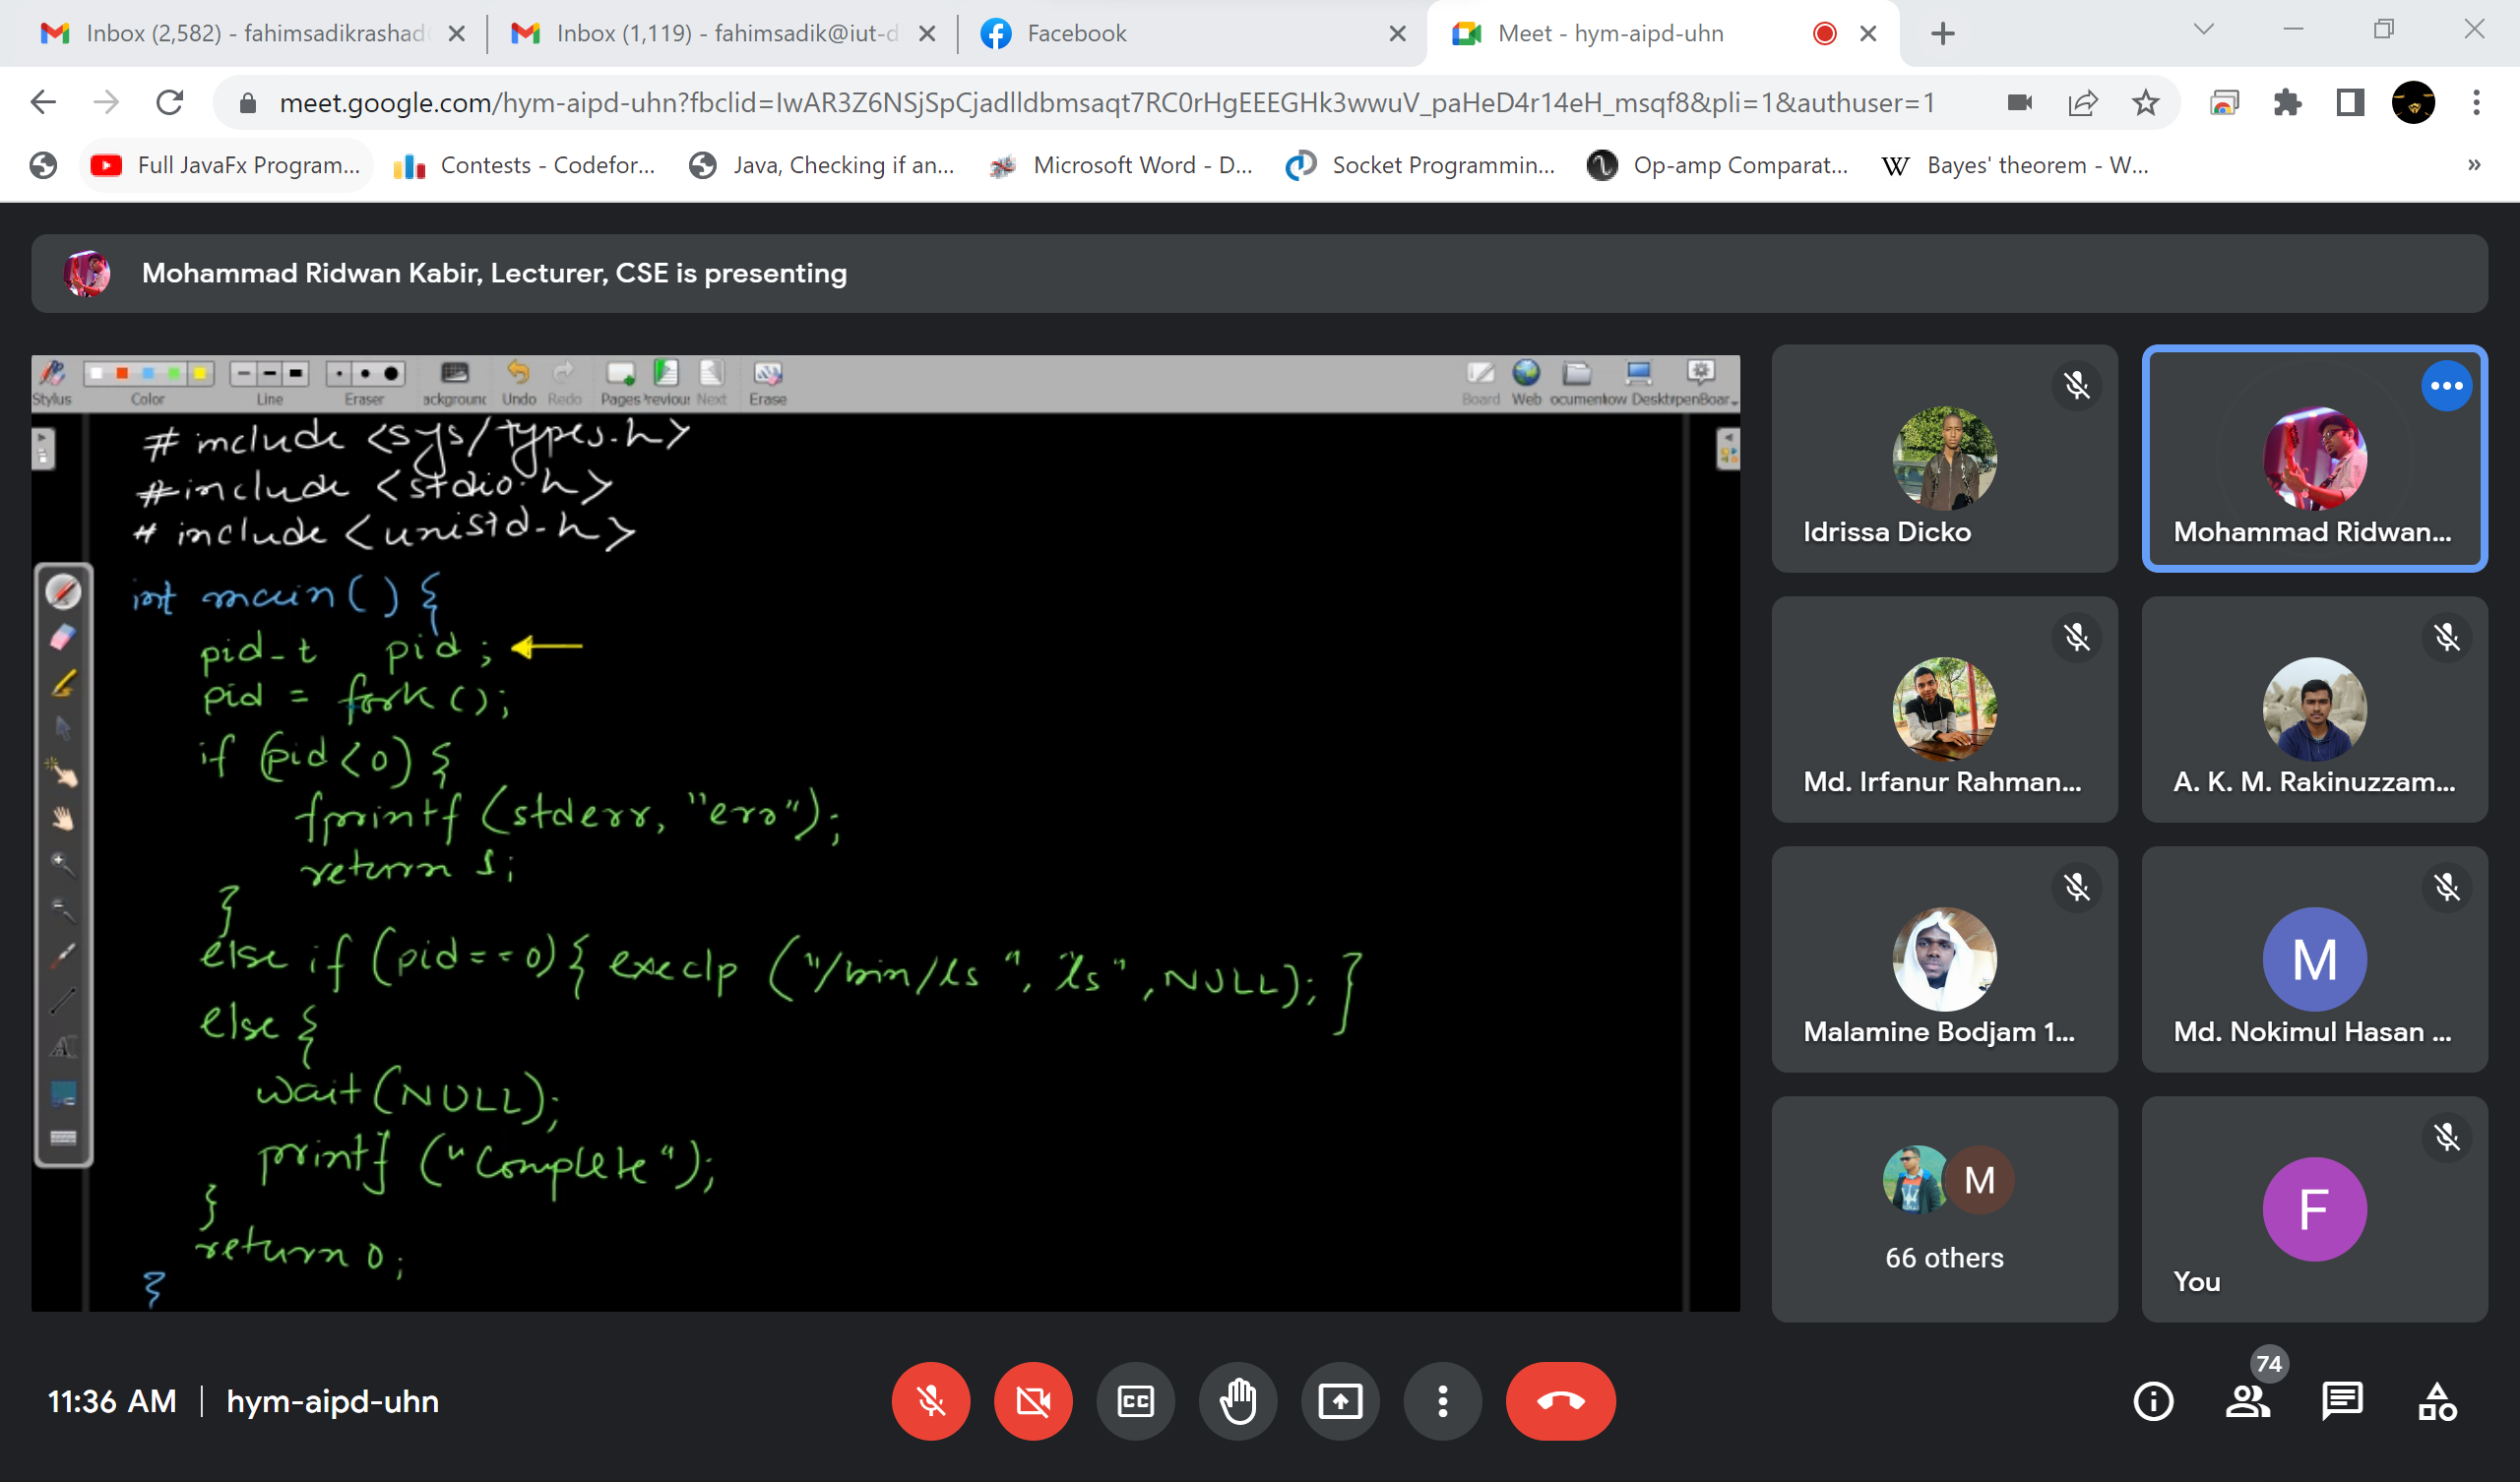 Inbox (2,582) - fahimsadikrashad
Inbox (1,119) - fahimsadik@iut-d
Facebook
Meet - hym-aipd-uhn
meet.google.com/hym-aipd-uhn?fbclid=IwAR3Z6NSjSpCjadlldbmsaqt7RC0rHgEEEGHk3wwuV_paHeD4r14eH_msqf8&pli=1&authuser=1
Full JavaFx Program...
Contests - Codefor...
Java, Checking if an...
Microsoft Word - D...
Socket Programmin...
Op-amp Comparat...
W
Bayes' theorem - W...
»
Mohammad Ridwan Kabir, Lecturer, CSE is presenting
Stylus
Color
Line
Eraser
ackground
Undo
Redo
Pages
Previous
Next
Erase
Board
Web
ocument
ow Deskt
penBoar
# include <sys/types.h>
#include <stdio.h>
# include <unistd.h>
int main() {
pid_t pid;
pid = fork();
if (pid<0) {
fprintf (stderr, "erro");
return 1;
}
else if (pid==0) { execlp ("/bin/ls", "ls", NULL); }
else {
wait(NULL);
printf ("Complete");
}
return 0;
}
Idrissa Dicko
Mohammad Ridwan...
Md. Irfanur Rahman...
A. K. M. Rakinuzzam...
Malamine Bodjam 1...
M
Md. Nokimul Hasan ...
M
66 others
F
You
11:36 AM
hym-aipd-uhn
CC
74